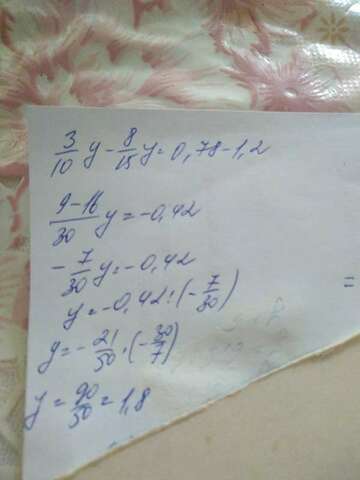 3/10 y - 8/15 y = 0,78 - 1,2
9-16/30 y = -0,42
- 7/30 y = -0,42
y = -0,42 : (- 7/30)
y = - 21/50 · (- 30/7)
y = 90/50 = 1,8
=